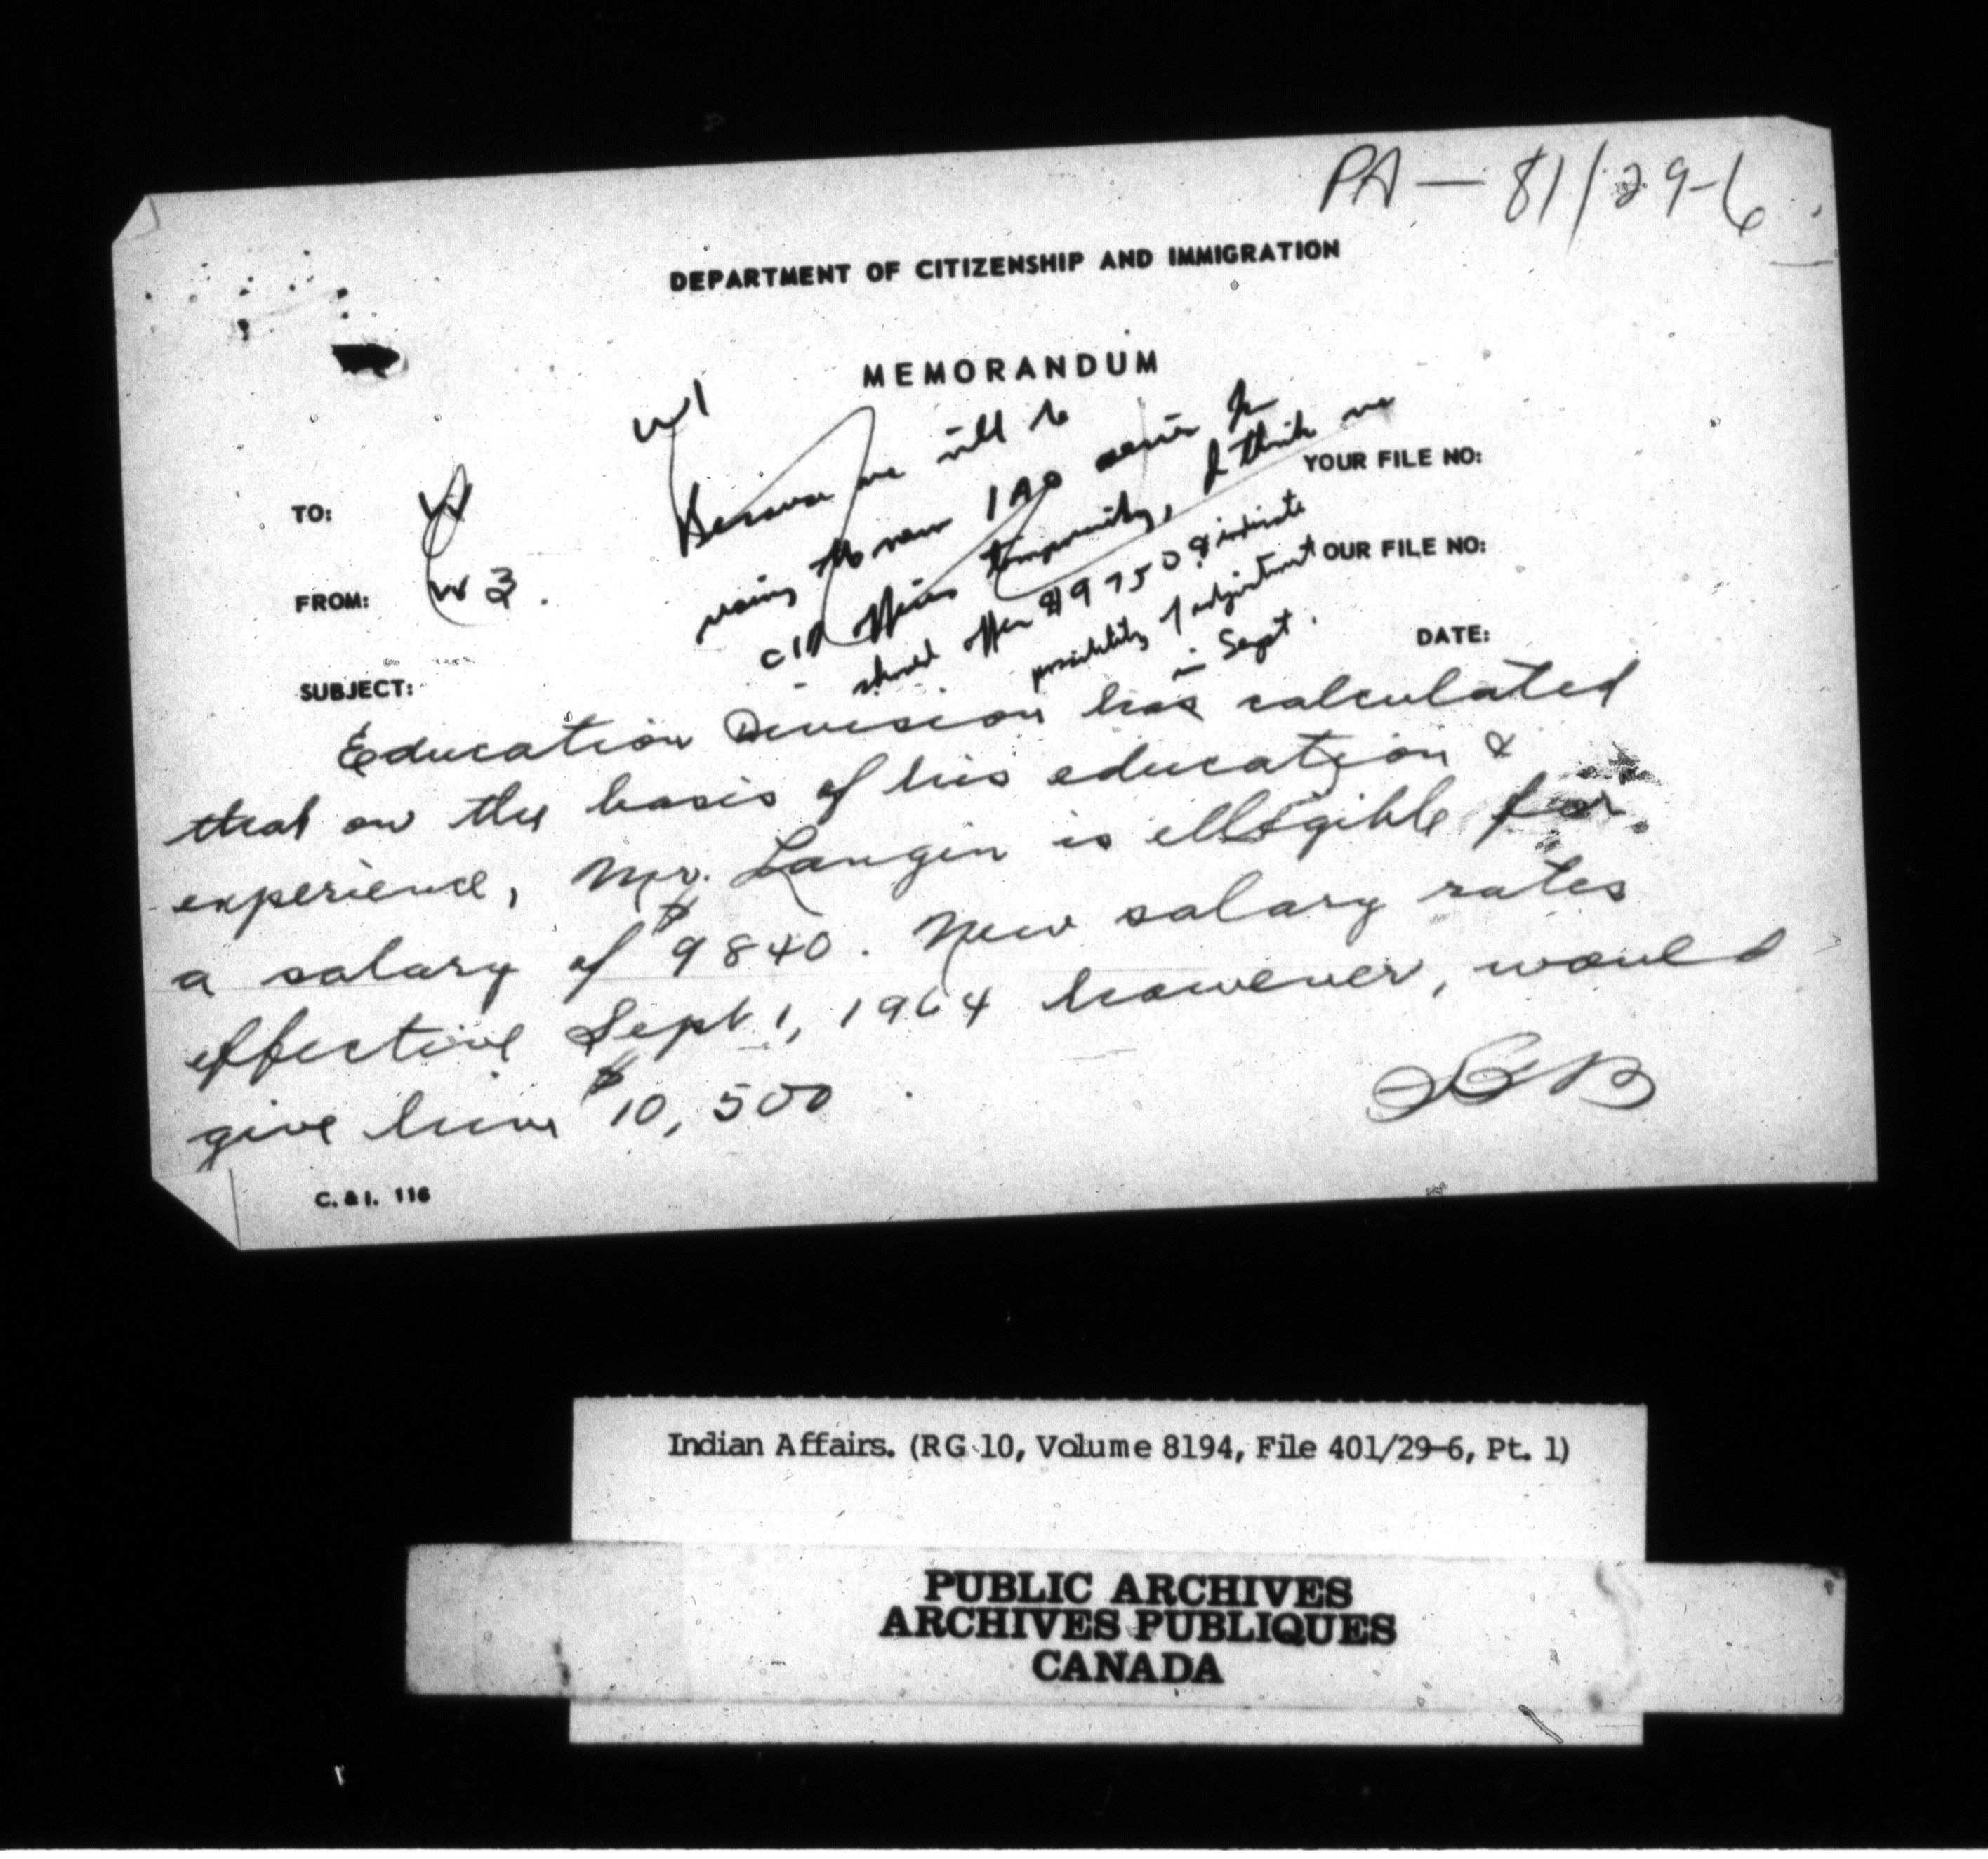 PA — 81/29-6
DEPARTMENT OF CITIZENSHIP AND IMMIGRATION
MEMORANDUM
W1
Because we will be
using the new 1A0 series for
C1D offices temporarily, I think we
should offer $9750 & indicate
possibility of adjustment
in Sept.
YOUR FILE NO:
TO: W
OUR FILE NO:
FROM: W3.
DATE:
SUBJECT:
Education Division has calculated
that on the basis of his education &
experience, Mr. Langin is elligible for
a salary of $9840. New salary rates
effective Sept 1, 1964 however, would
give him $10,500.
C. & I. 116
Indian Affairs. (RG 10, Volume 8194, File 401/29-6, Pt. 1)
PUBLIC ARCHIVES
ARCHIVES PUBLIQUES
CANADA